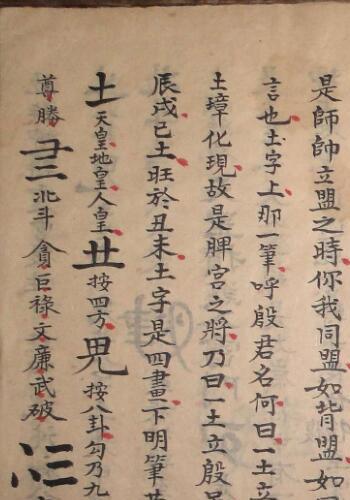 是師帥立盟之時你我同盟如背盟如
言也土字上那一筆呼殷君名何曰一土立
土璋化現故是脾宮之將乃曰一土立殷
辰戌已土旺於丑未土字是四畫一下明筆
土天皇地皇人皇 按四方 按八卦勾乃九
尊勝 北斗貪巨祿文廉武破